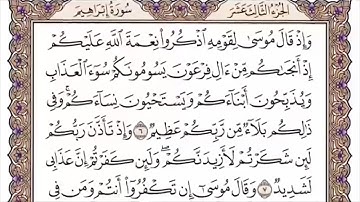 الجزء الثالث عشر سورة إبراهيم
وَإِذْ قَالَ مُوسَىٰ لِقَوْمِهِ ٱذْكُرُوا۟ نِعْمَةَ ٱللَّهِ عَلَيْكُمْ
إِذْ أَنجَىٰكُم مِّنْ ءَالِ فِرْعَوْنَ يَسُومُونَكُمْ سُوٓءَ ٱلْعَذَابِ
وَيُذَبِّحُونَ أَبْنَآءَكُمْ وَيَسْتَحْيُونَ نِسَآءَكُمْ ۚ وَفِى
ذَٰلِكُم بَلَآءٌ مِّن رَّبِّكُمْ عَظِيمٌ ٦ وَإِذْ تَأَذَّنَ رَبُّكُمْ
لَئِن شَكَرْتُمْ لَأَزِيدَنَّكُمْ ۖ وَلَئِن كَفَرْتُمْ إِنَّ عَذَابِى
لَشَدِيدٌ ٧ وَقَالَ مُوسَىٰٓ إِن تَكْفُرُوٓا۟ أَنتُمْ وَمَن فِى